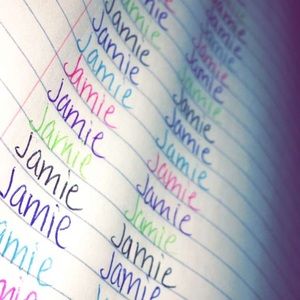 Jamie Jamie
Jamie Jamie
Jamie Jamie
Jamie Jamie
Jamie Jamie
Jamie Jamie
Jamie Jamie
Jamie Jamie
Jamie Jamie
Jamie Jamie
amie
amie